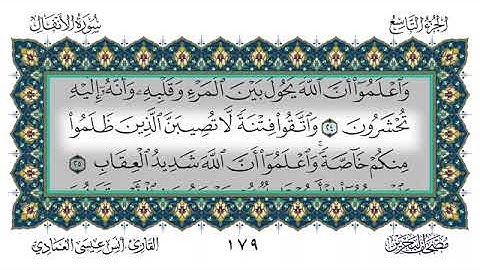 الجزء التاسع
سورة الأنفال
وَٱعۡلَمُوٓاْ أَنَّ ٱللَّهَ يَحُولُ بَيۡنَ ٱلۡمَرۡءِ وَقَلۡبِهِۦ وَأَنَّهُۥٓ إِلَيۡهِ
تُحۡشَرُونَ ٢٤ وَٱتَّقُواْ فِتۡنَةٗ لَّا تُصِيبَنَّ ٱلَّذِينَ ظَلَمُواْ
مِنكُمۡ خَآصَّةٗۖ وَٱعۡلَمُوٓاْ أَنَّ ٱللَّهَ شَدِيدُ ٱلۡعِقَابِ ٢٥
مصحف البحرين
١٧٩
القارئ أنس عيسى العمادي